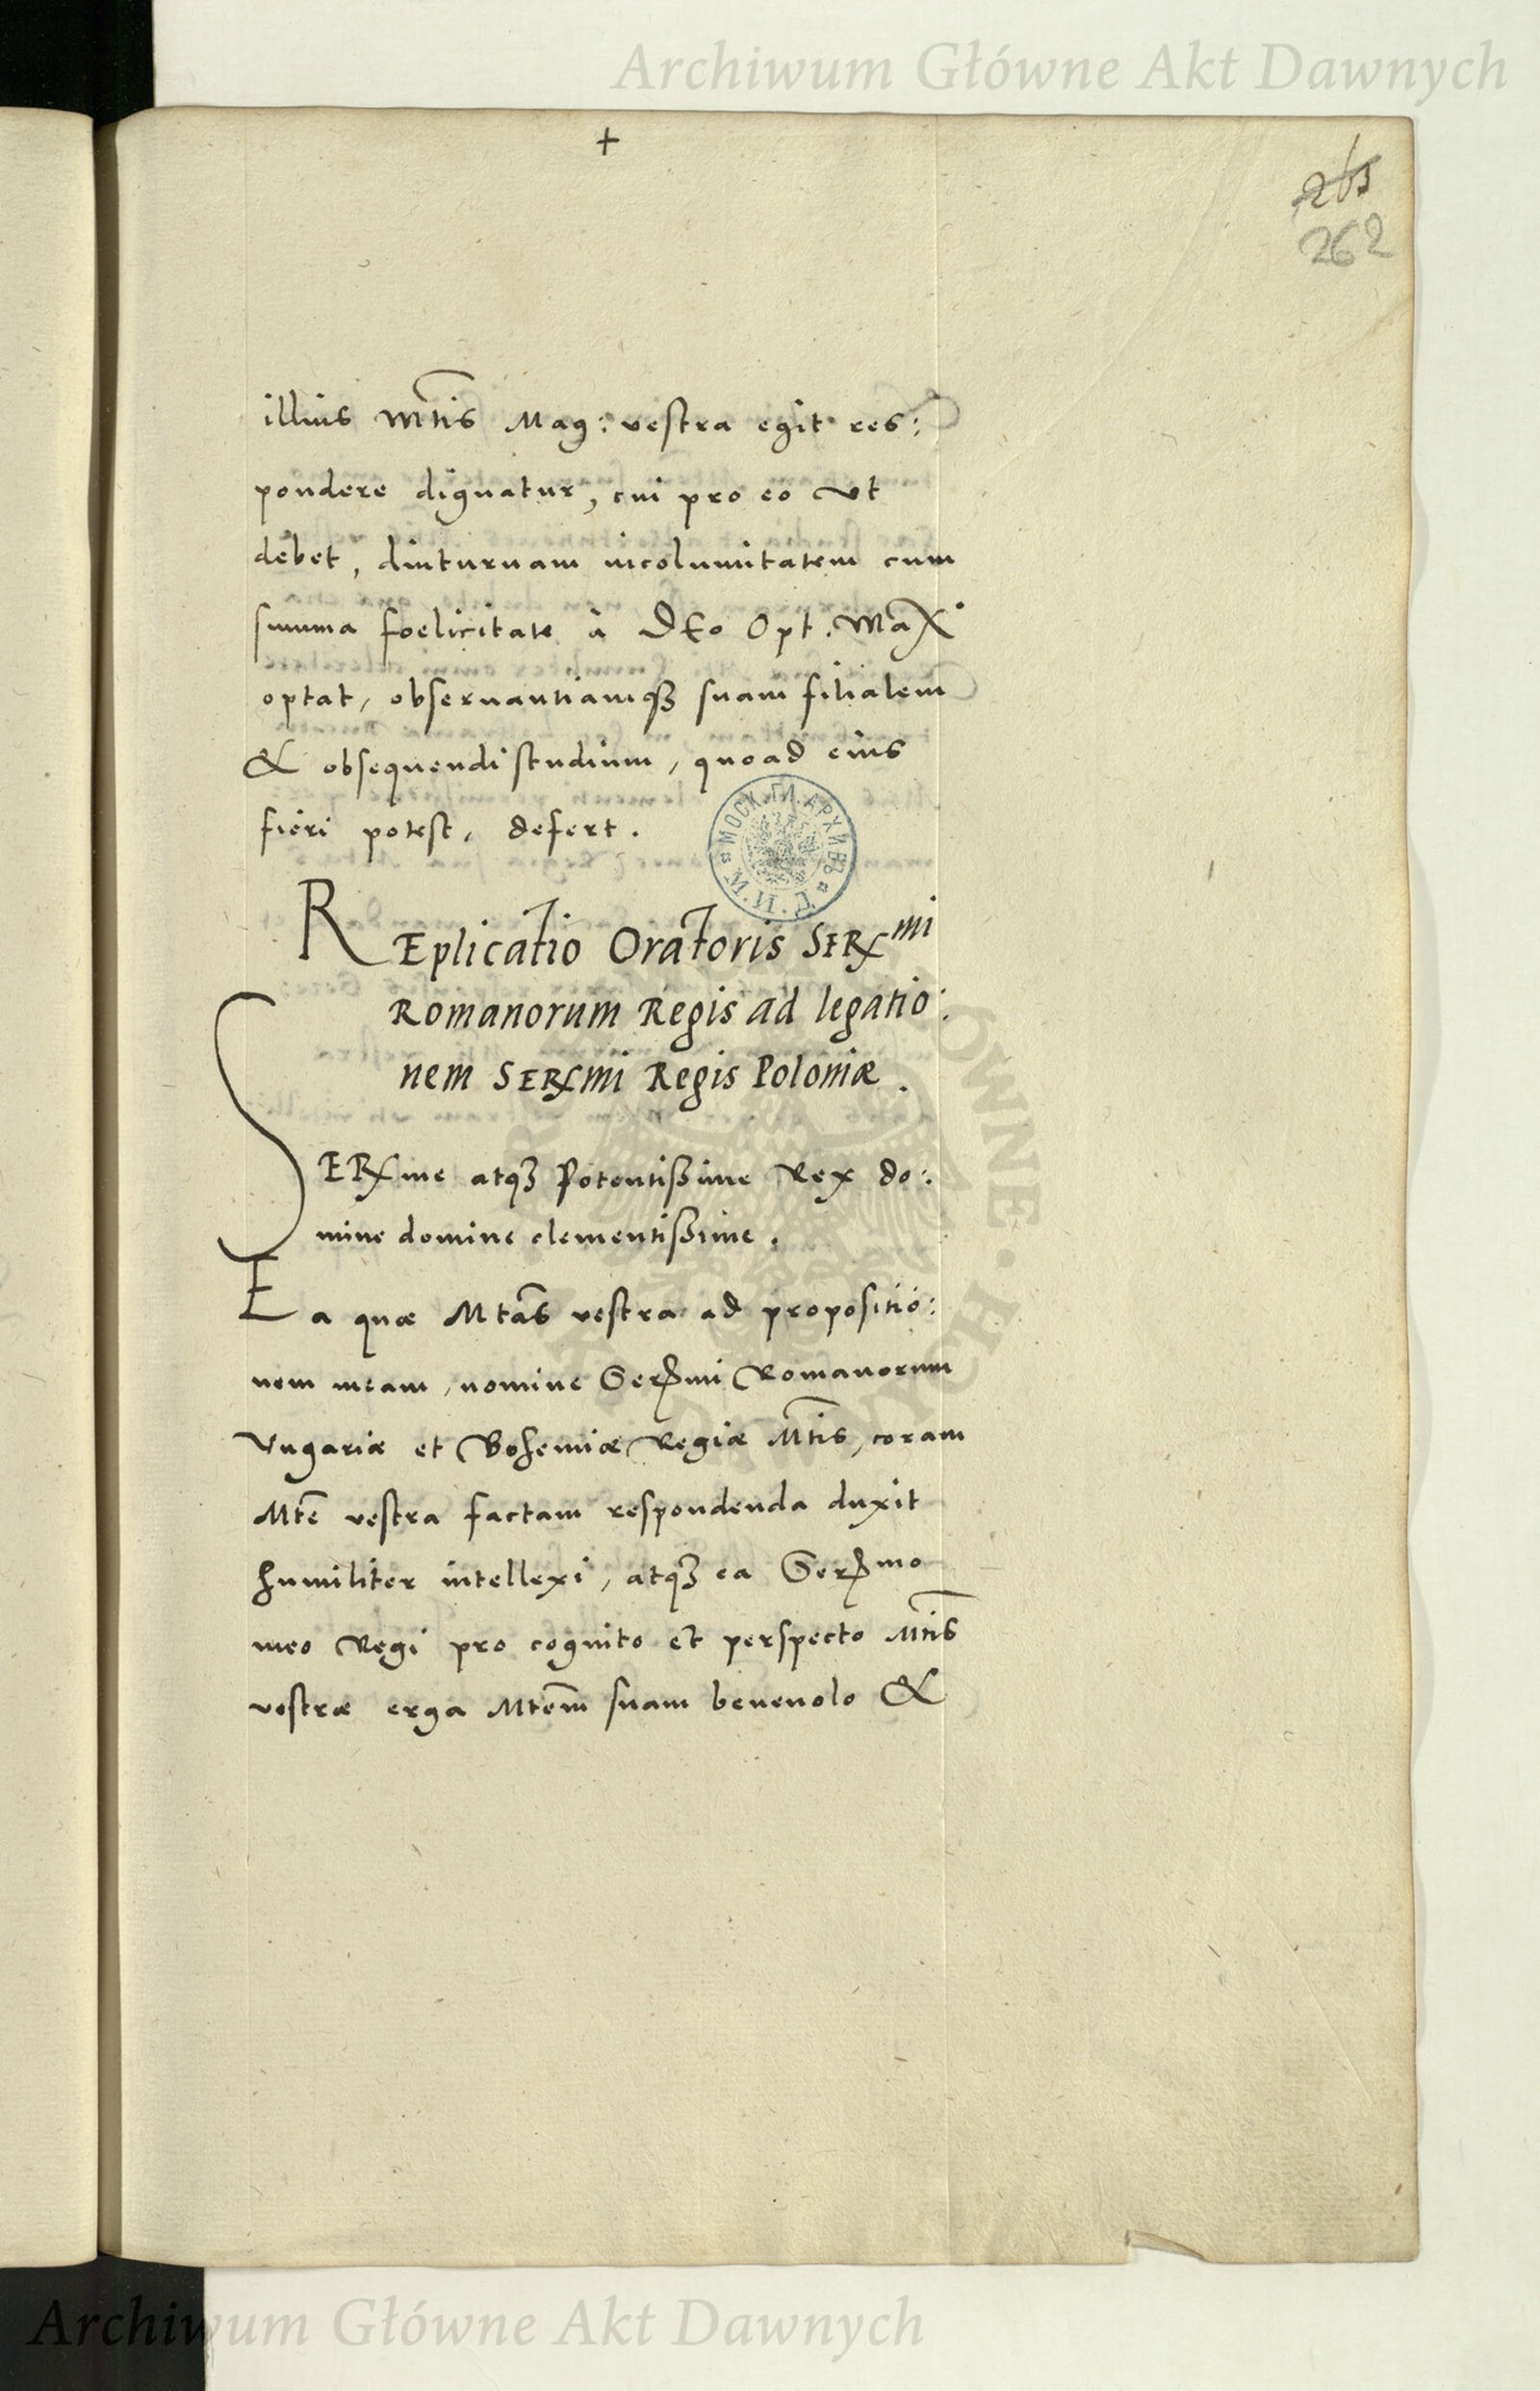 Archiwum Główne Akt Dawnych
+
262
illius Mtis Mag: vestra egit res:
pondere dignatur, cui pro eo vt
debet, diuturnam incolumitatem cum
summa foelicitate à DEo Opt. MaX.
optat, obseruantiamqȝ suam filialem
& obsequendi studium, quoad eius
fieri potest, defert.
МОСК. ГЛ. АРХИВЪ М. И. Д.
REplicatio Oratoris SERmi
Romanorum Regis ad legatio:
nem SERmi Regis Poloniæ.
SERme atqȝ Potentißime Rex do:
mine domine clementißime.
Ea quæ Mtas vestra ad propositio:
nem meam, nomine Sermi Romanorum
Vngariæ et Bohemiæ Regiæ Mtis, coram
Mte vestra factam respondenda duxit
humiliter intellexi, atqȝ ea Sermo
meo Regi pro cognito et perspecto Mtis
vestræ erga Mtem suam beneuolo &
Archiwum Główne Akt Dawnych